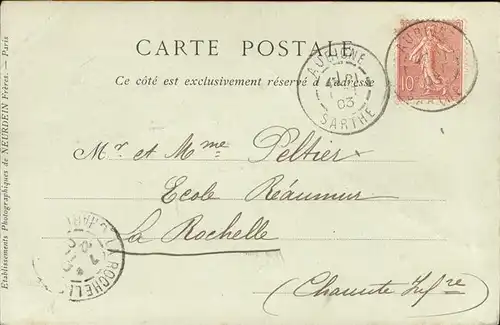 CARTE POSTALE
Ce côté est exclusivement réservé à l'adresse
AUBIGNÉ
03
SARTHE
10
Mr et Mme Peltier
Ecole Réaumur
La Rochelle
(Charente Infre)
LA ROCHELLE
Etablissements Photographiques de NEURDEIN Frères. — Paris